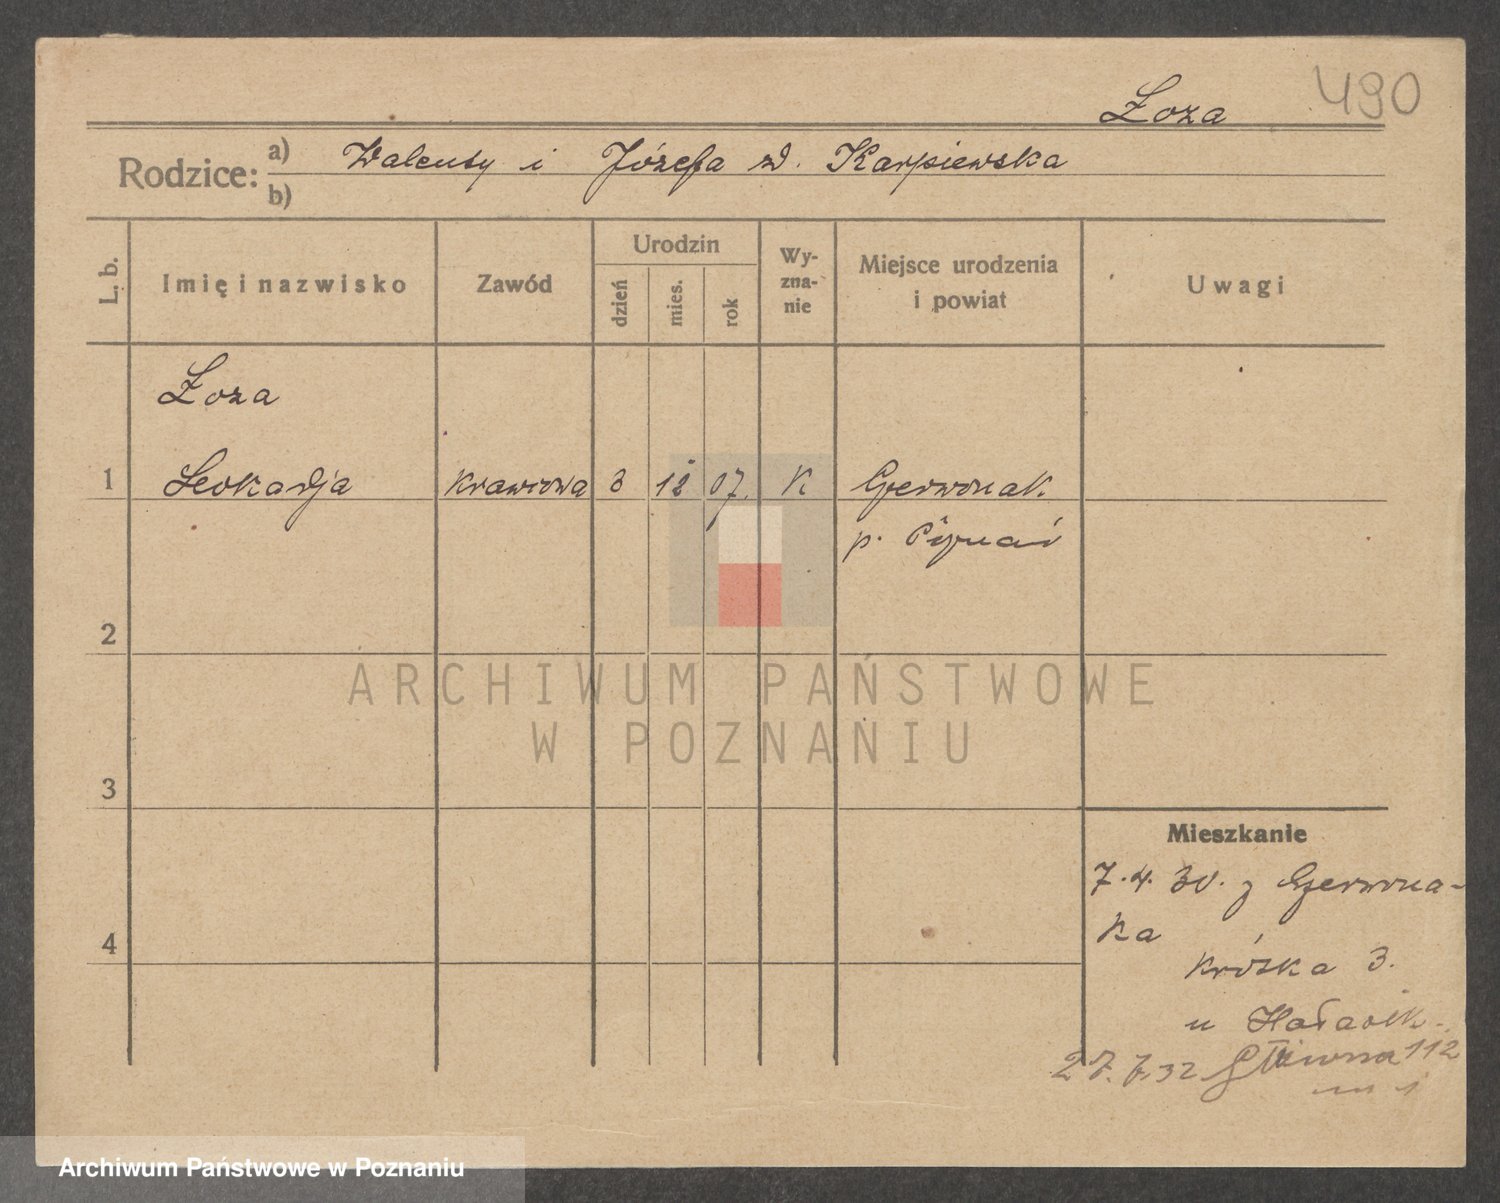 490
Łoza
Rodzice: a) Walenty i Józefa zd. Karpiewska
b)
L. b.
Imię i nazwisko
Zawód
Urodzin
dzień
mies.
rok
Wy-
zna-
nie
Miejsce urodzenia
i powiat
Uwagi
Łoza
1 Leokadja krawcowa 3 12 07. K Czerwonak
p. Poznań
2
3
4
Mieszkanie
7.4.30. z Czerwona-
ka
Króska 3.
u
27.7.32 Główna 112
m 1
ARCHIWUM PAŃSTWOWE
W POZNANIU
Archiwum Państwowe w Poznaniu